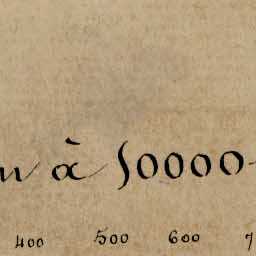 à 50000
400 500 600